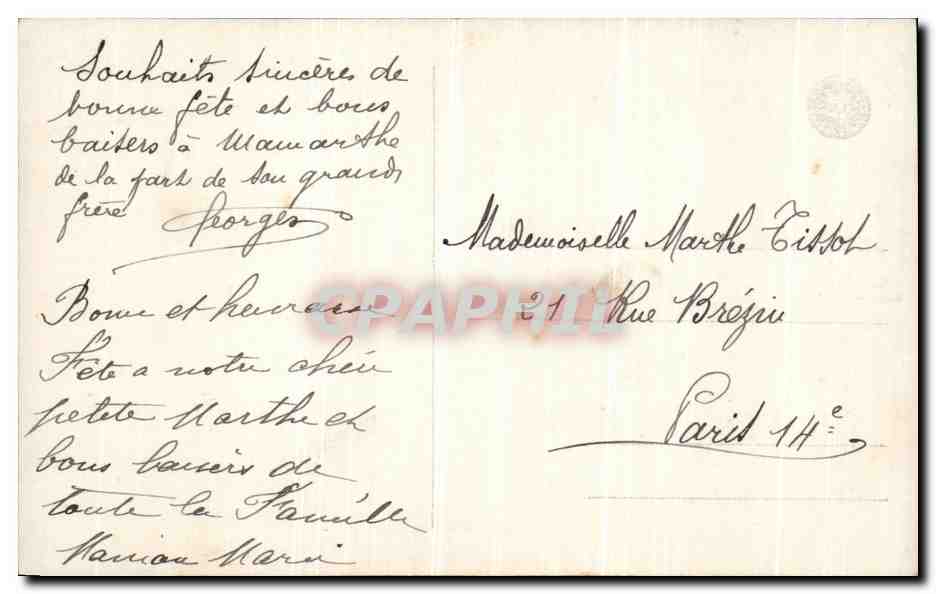 Souhaits sincères de
bonne fête et bons
baisers à Mamarthe
de la part de son grand
frère Georges
Bonne et heureuse
Fête a notre chère
petite Marthe et
bons baisers de
toute la Famille
Maman Marie
Mademoiselle Marthe Tissot
21 Rue Brézin
Paris 14e
CPAPHIL